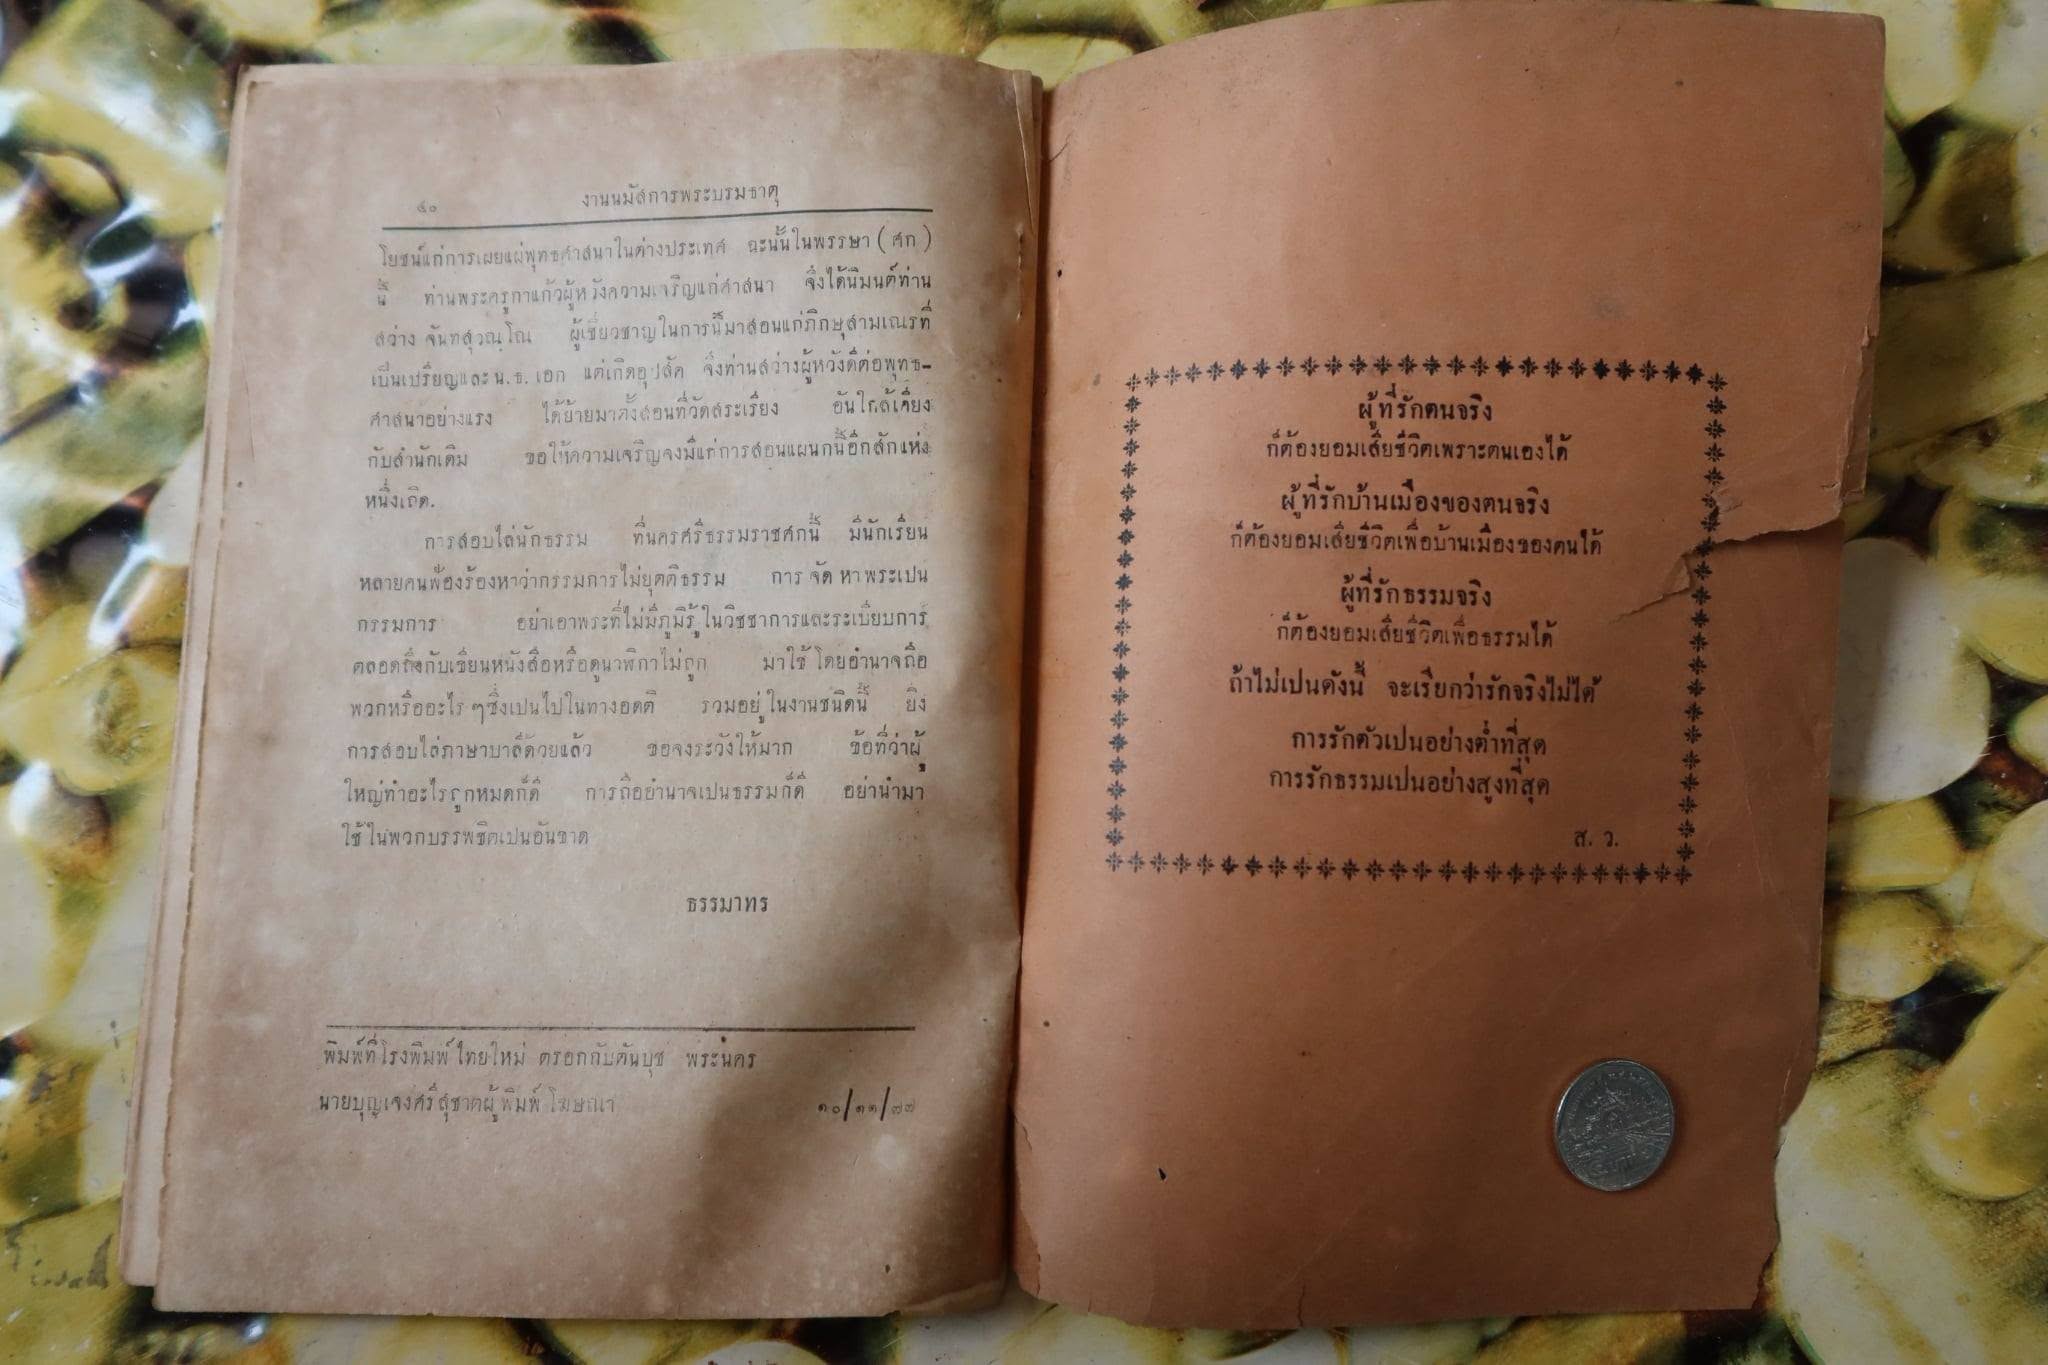 ๔๐ งานนมัสการพระบรมธาตุ
โยชน์แก่การเผยแผ่พุทธศาสนาในต่างประเทศ ฉะนั้นในพรรษา ( ศก )
นี้ ท่านพระครูกาแก้วผู้หวังความเจริญแก่ศาสนา จึ่งได้นิมนต์ท่าน
สว่าง จันทสุวณฺโณ ผู้เชี่ยวชาญในการนี้มาสอนแก่ภิกษุสามเณรที่
เป็นเปรียญและ น. ธ. เอก แต่เกิดอุปสัค จึ่งท่านสว่างผู้หวังดีต่อพุทธ-
ศาสนาอย่างแรง ได้ย้ายมาตั้งสอนที่วัดสระเรียง อันใกล้เคียง
กับสำนักเดิม ขอให้ความเจริญจงมีแก่การสอนแผนกนี้อีกสักแห่ง
หนึ่งเถิด.
การสอบไล่นักธรรม ที่นครศรีธรรมราชศกนี้ มีนักเรียน
หลายคนฟ้องร้องหาว่ากรรมการไม่ยุตติธรรม การ จัด หา พระเปน
กรรมการ อย่าเอาพระที่ไม่มีภูมิรู้ในวิชชาการและระเบียบการ
ตลอดถึงกับเขียนหนังสือหรือดูนาฬิกาไม่ถูก มาใช้ โดยอำนาจถือ
พวกหรืออะไร ๆ ซึ่งเปนไปในทางอคติ รวมอยู่ในงานชนิดนี้ ยิ่ง
การสอบไล่ภาษาบาลีด้วยแล้ว ขอจงระวังให้มาก ข้อที่ว่าผู้
ใหญ่ทำอะไรถูกหมดก็ดี การถืออำนาจเปนธรรมก็ดี อย่านำมา
ใช้ในพวกบรรพชิตเปนอันขาด
ธรรมาทร
พิมพ์ที่โรงพิมพ์ไทยใหม่ ตรอกกับตันบุช พระนคร
นายบุญเจงศรีสุชาตผู้พิมพ์โฆษณา ๑๐/๑๑/๗๗
ผู้ที่รักตนจริง
ก็ต้องยอมเสียชีวิตเพราะตนเองได้
ผู้ที่รักบ้านเมืองของตนจริง
ก็ต้องยอมเสียชีวิตเพื่อบ้านเมืองของตนได้
ผู้ที่รักธรรมจริง
ก็ต้องยอมเสียชีวิตเพื่อธรรมได้
ถ้าไม่เปนดังนี้ จะเรียกว่ารักจริงไม่ได้
การรักตัวเปนอย่างต่ำที่สุด
การรักธรรมเปนอย่างสูงที่สุด
ส. ว.